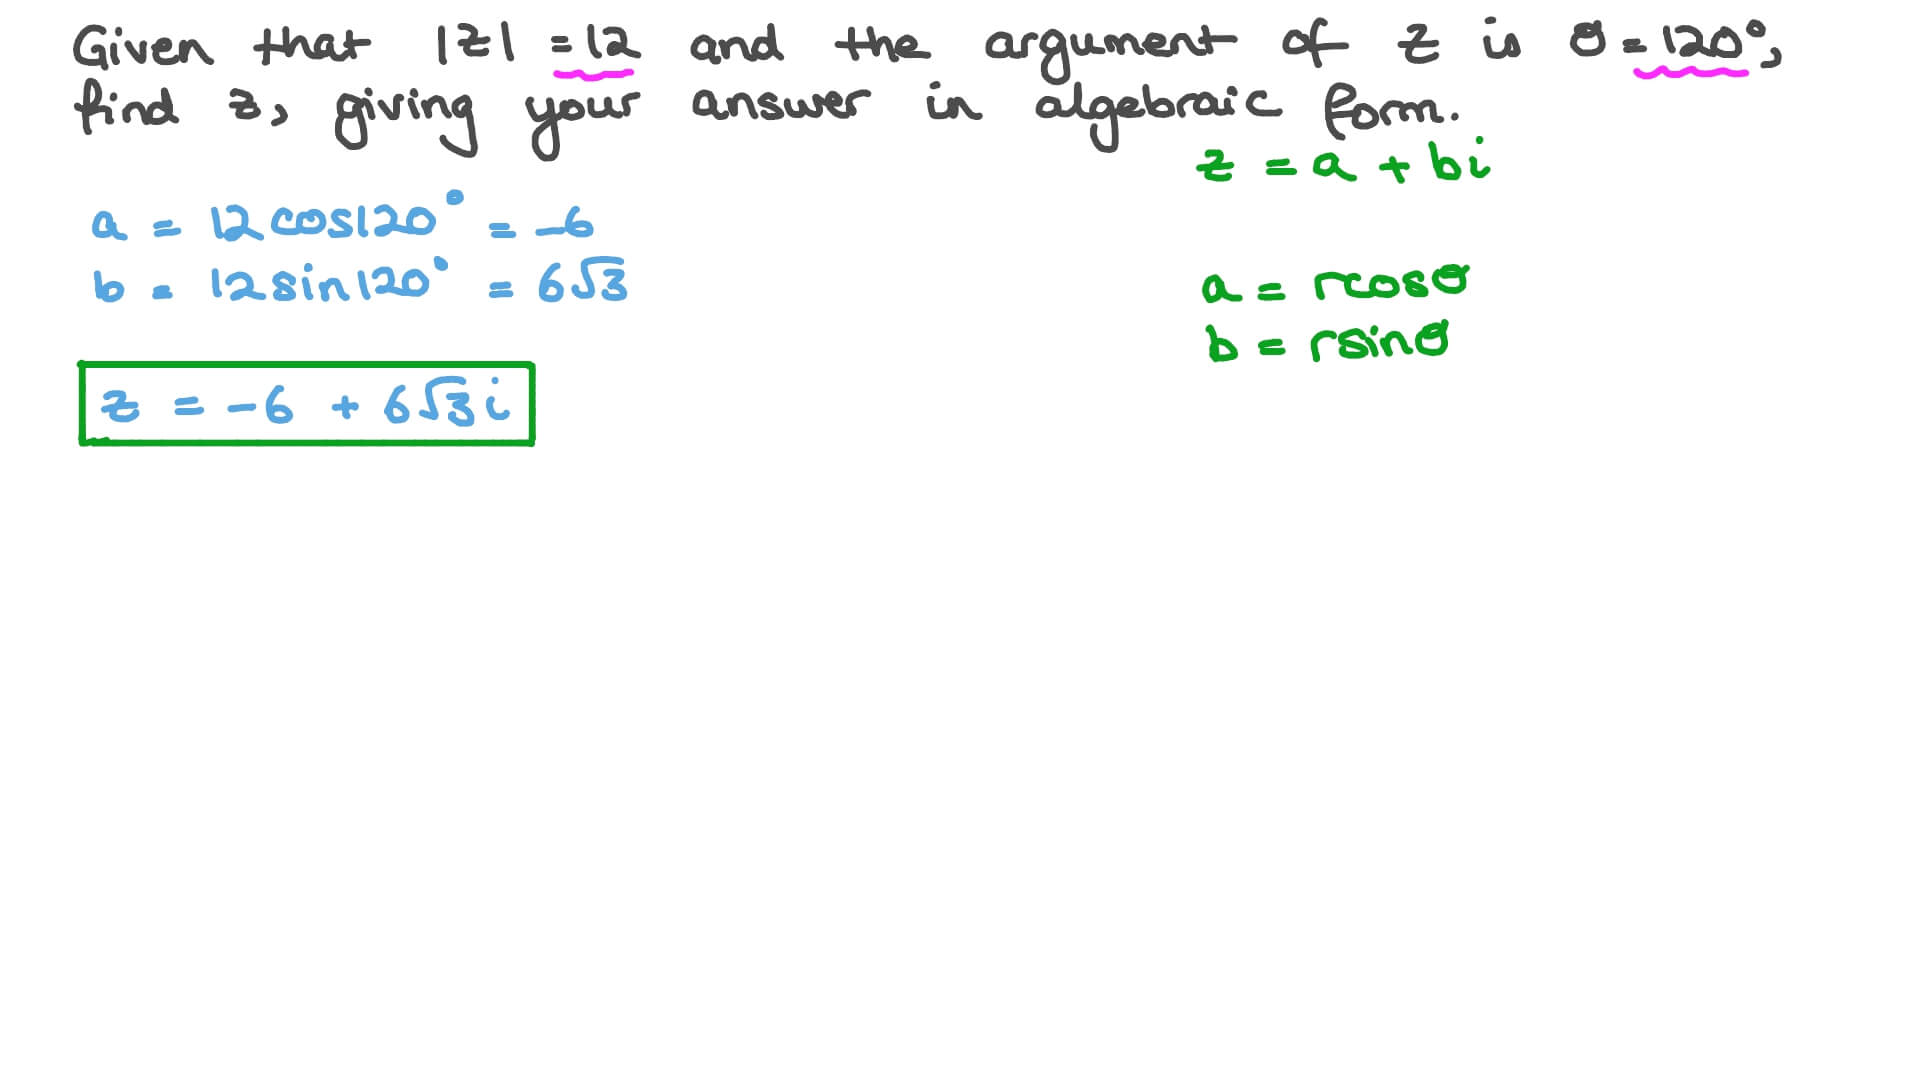 Given that |z| = 12 and the argument of z is θ = 120°,
find z, giving your answer in algebraic form.
z = a + bi
a = 12cos120° = -6
b = 12sin120° = 6√3
a = rcosθ
b = rsinθ
z = -6 + 6√3i